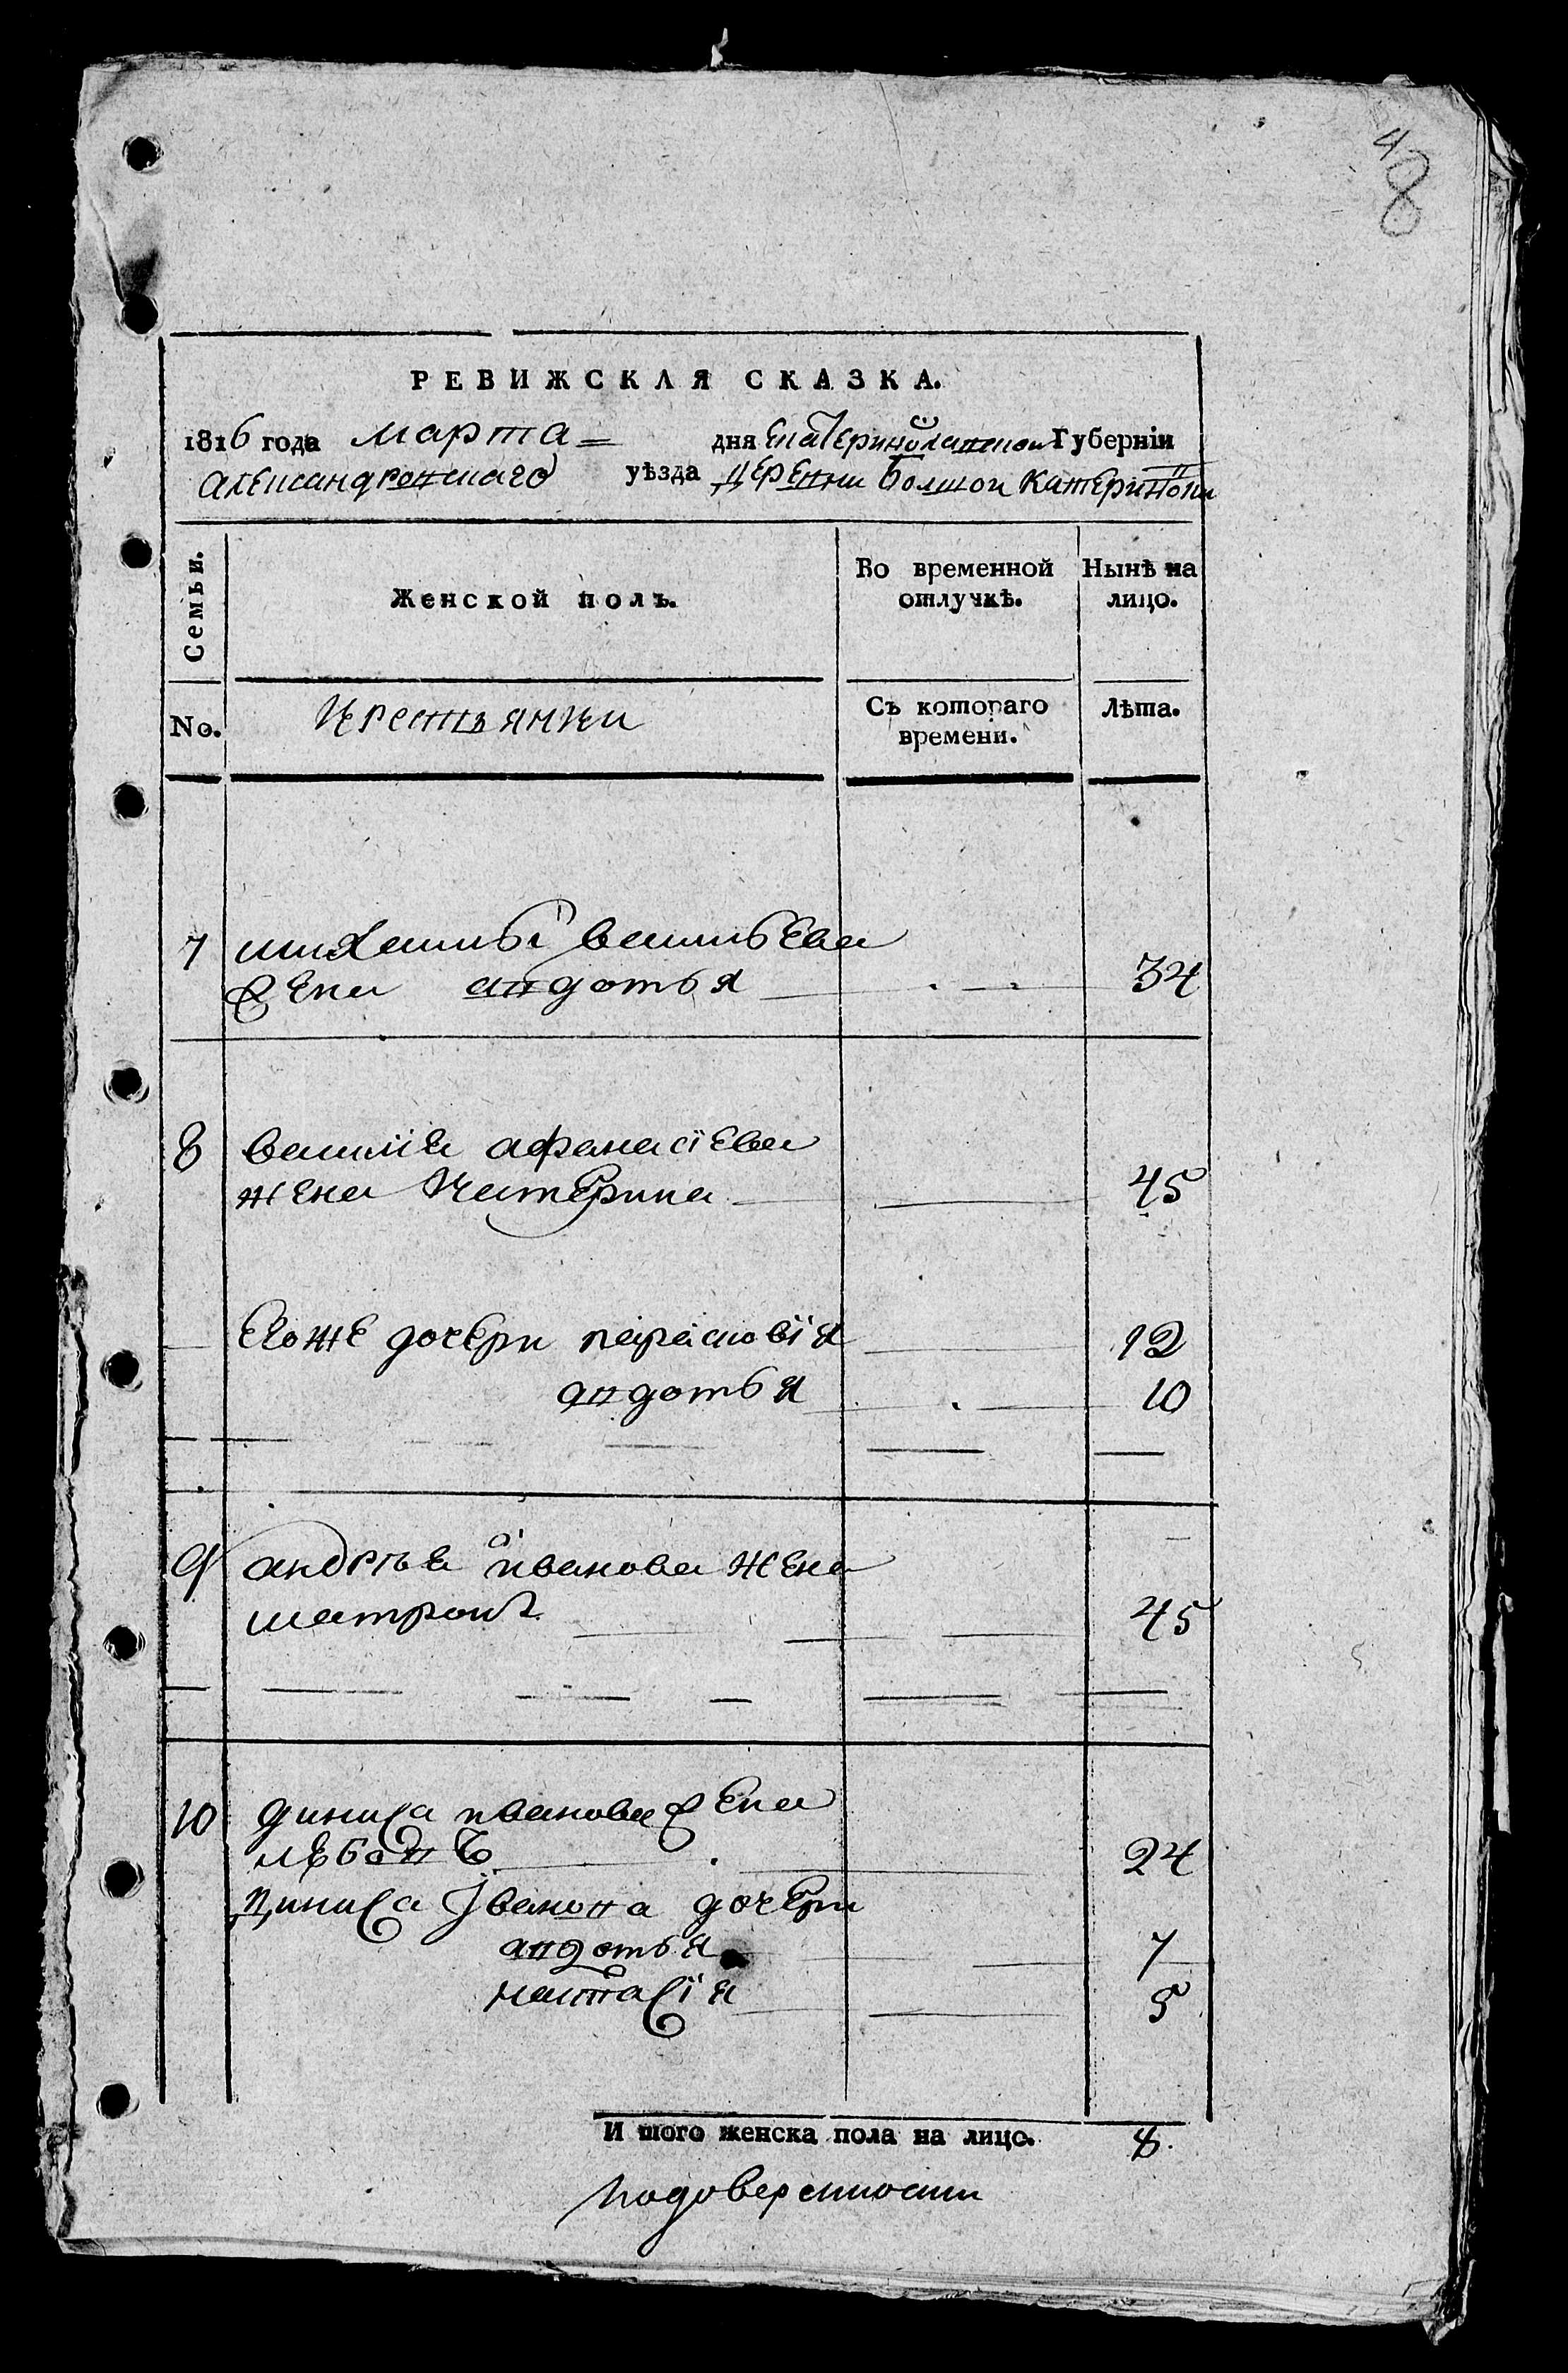 48
РЕВИЖСКАЯ СКАЗКА.
1816 года марта дня Екатеринославской Губернїи
александровскаго уѣзда деревни Болшой Катериновки
Семьи. Женской полъ. Во временной отлучкѣ. Нынѣ на лицо.
No. крестьянки Съ котораго времени. Лѣта.
7 михаилы васильева
жена авдотья 34
8 василїя афанасїева
жена Катерина 45
Егоже дочери парасковїя 12
авдотья 10
9 андрѣя иванова жена
матрона 45
10 дениса иванова жена
любовь 24
дениса Iванова дочери
авдотья 7
настасїя 5
И того женска пола на лицо. 8.
подоверенности